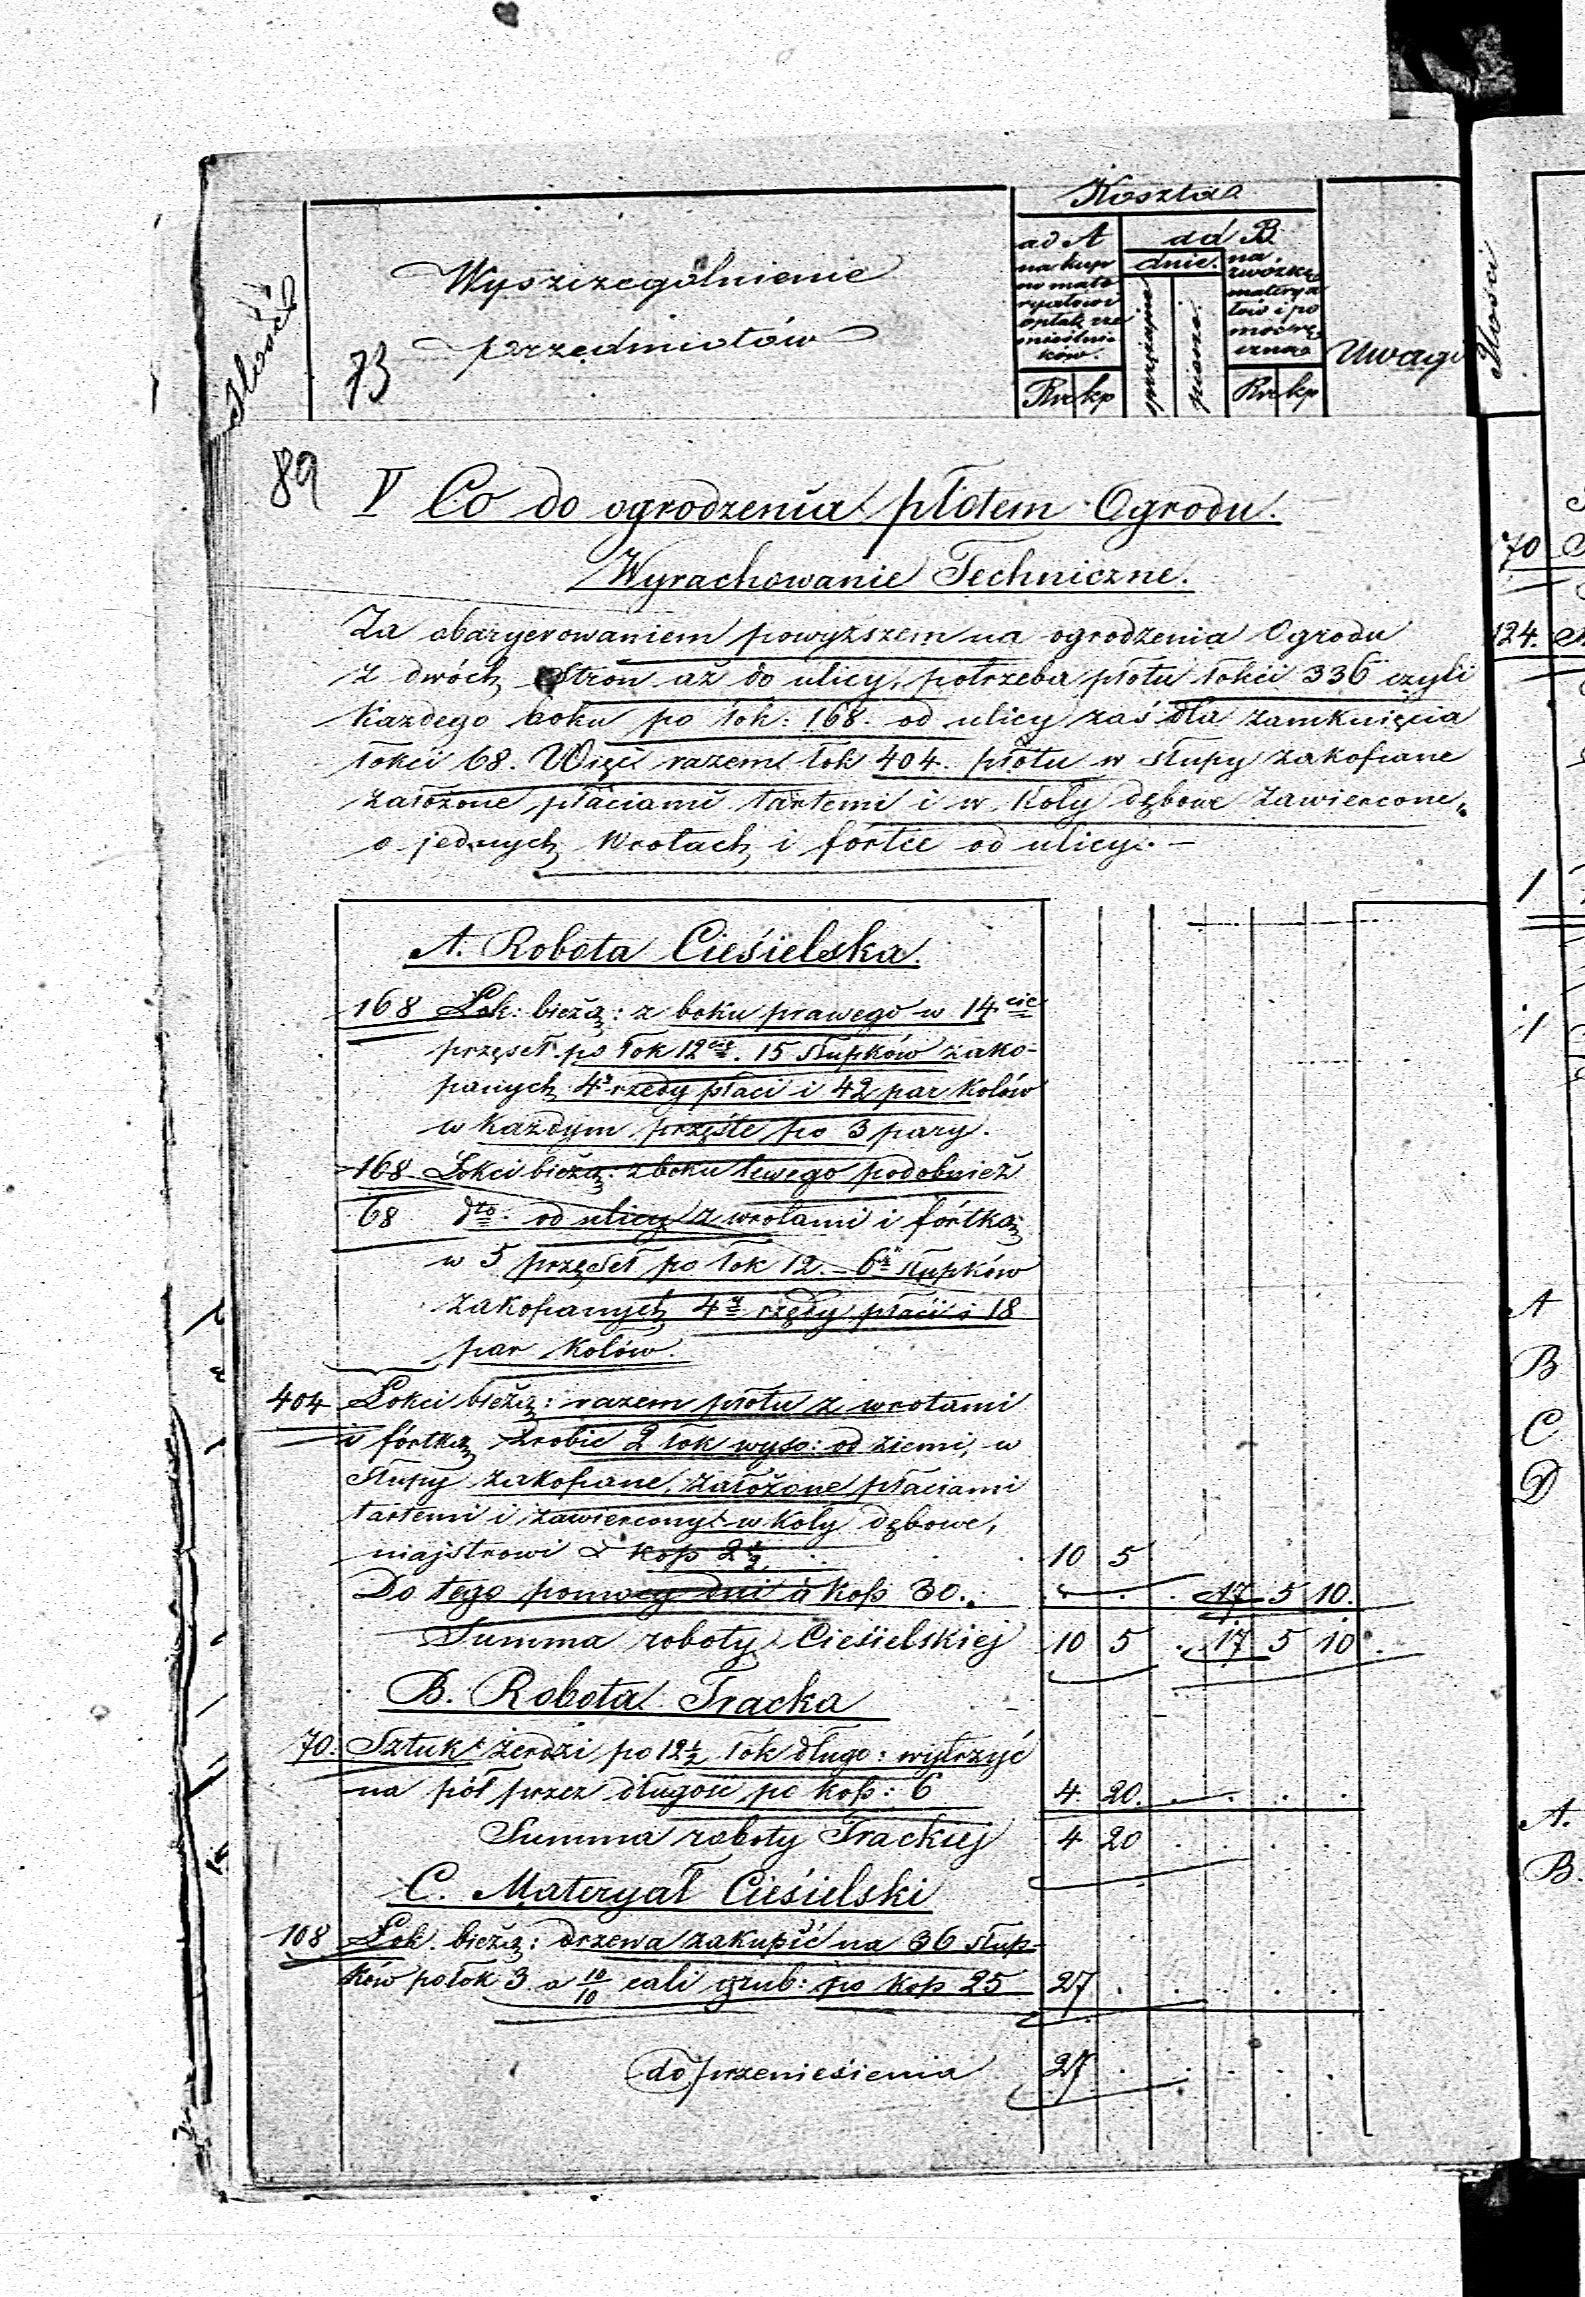 Ilość
73
Wyszczególnienie
przedmiotów
Koszta
ad A
na kup
no mate
ryałów i
opłatę rze
mieślni-
ków.
Rs kp
ad B
dnie.
sprzężajne
piesze
na
zwózkę
materya
łów i po
moc rę-
czną
Rs kp
Uwagi
89
V Co do ogrodzenia płotem Ogrodu.
Wyrachowanie Techniczne.
Za obaryerowaniem powyższem na ogrodzenia Ogrodu
z dwóch Stron aż do ulicy, potrzeba płotu łokci 336 czyli
Każdego boku po łok: 168. od ulicy zaś dla zamknięcia
łokci 68. Więc razem łok 404. płotu w słupy zakopane
założone płaciami tartemi i w Koły dębowe zawiercone,
o jednych Wrotach i fórtce od ulicy. –
A. Robota Cieśielska.
168 Łok: bieżą: z boku prawego w 14 cie
przęseł po łok 12 cie. 15 słupków zako-
panych 4 rzędy płaci i 42 par Kołów
w każdym przęśle po 3 pary.
168 Łokci bieżą: z boku lewego podobnież
68 dto. od ulicy z wrotami i fórtką
w 5 przęseł po łok 12. – 6 słupków
zakopanych 4 rzędy płaci i 18
par Kołów.
404 Łokci bieżą: razem płotu z wrotami
i fórtką zrobić 2 łok wyso: od ziemi, w
Słupy zakopane, założone płaciami
tartemi i zawiercony w koły dębowe,
majstrowi à kop 2 1/2 10 5
Do tego pomocy dni à kop 30. 17 5 10.
Summa roboty Cieśielskiej 10 5 . 17 5 10
B. Robota Tracka
70. Sztuk żerdzi po 12 1/2 łok długo: wytrzyć
na pół przez długość po kop: 6 4. 20.
Summa roboty Trackiej 4 20
C. Materyał Cieśielski
108 Łok. bieżą: drzewa zakupić na 36 słup-
ków po łok 3 a 10/10 cali grub: po kop 25 27
do przeniesienia 27
Ilości
70
124.
1
1
A
B
C
D
A.
B.